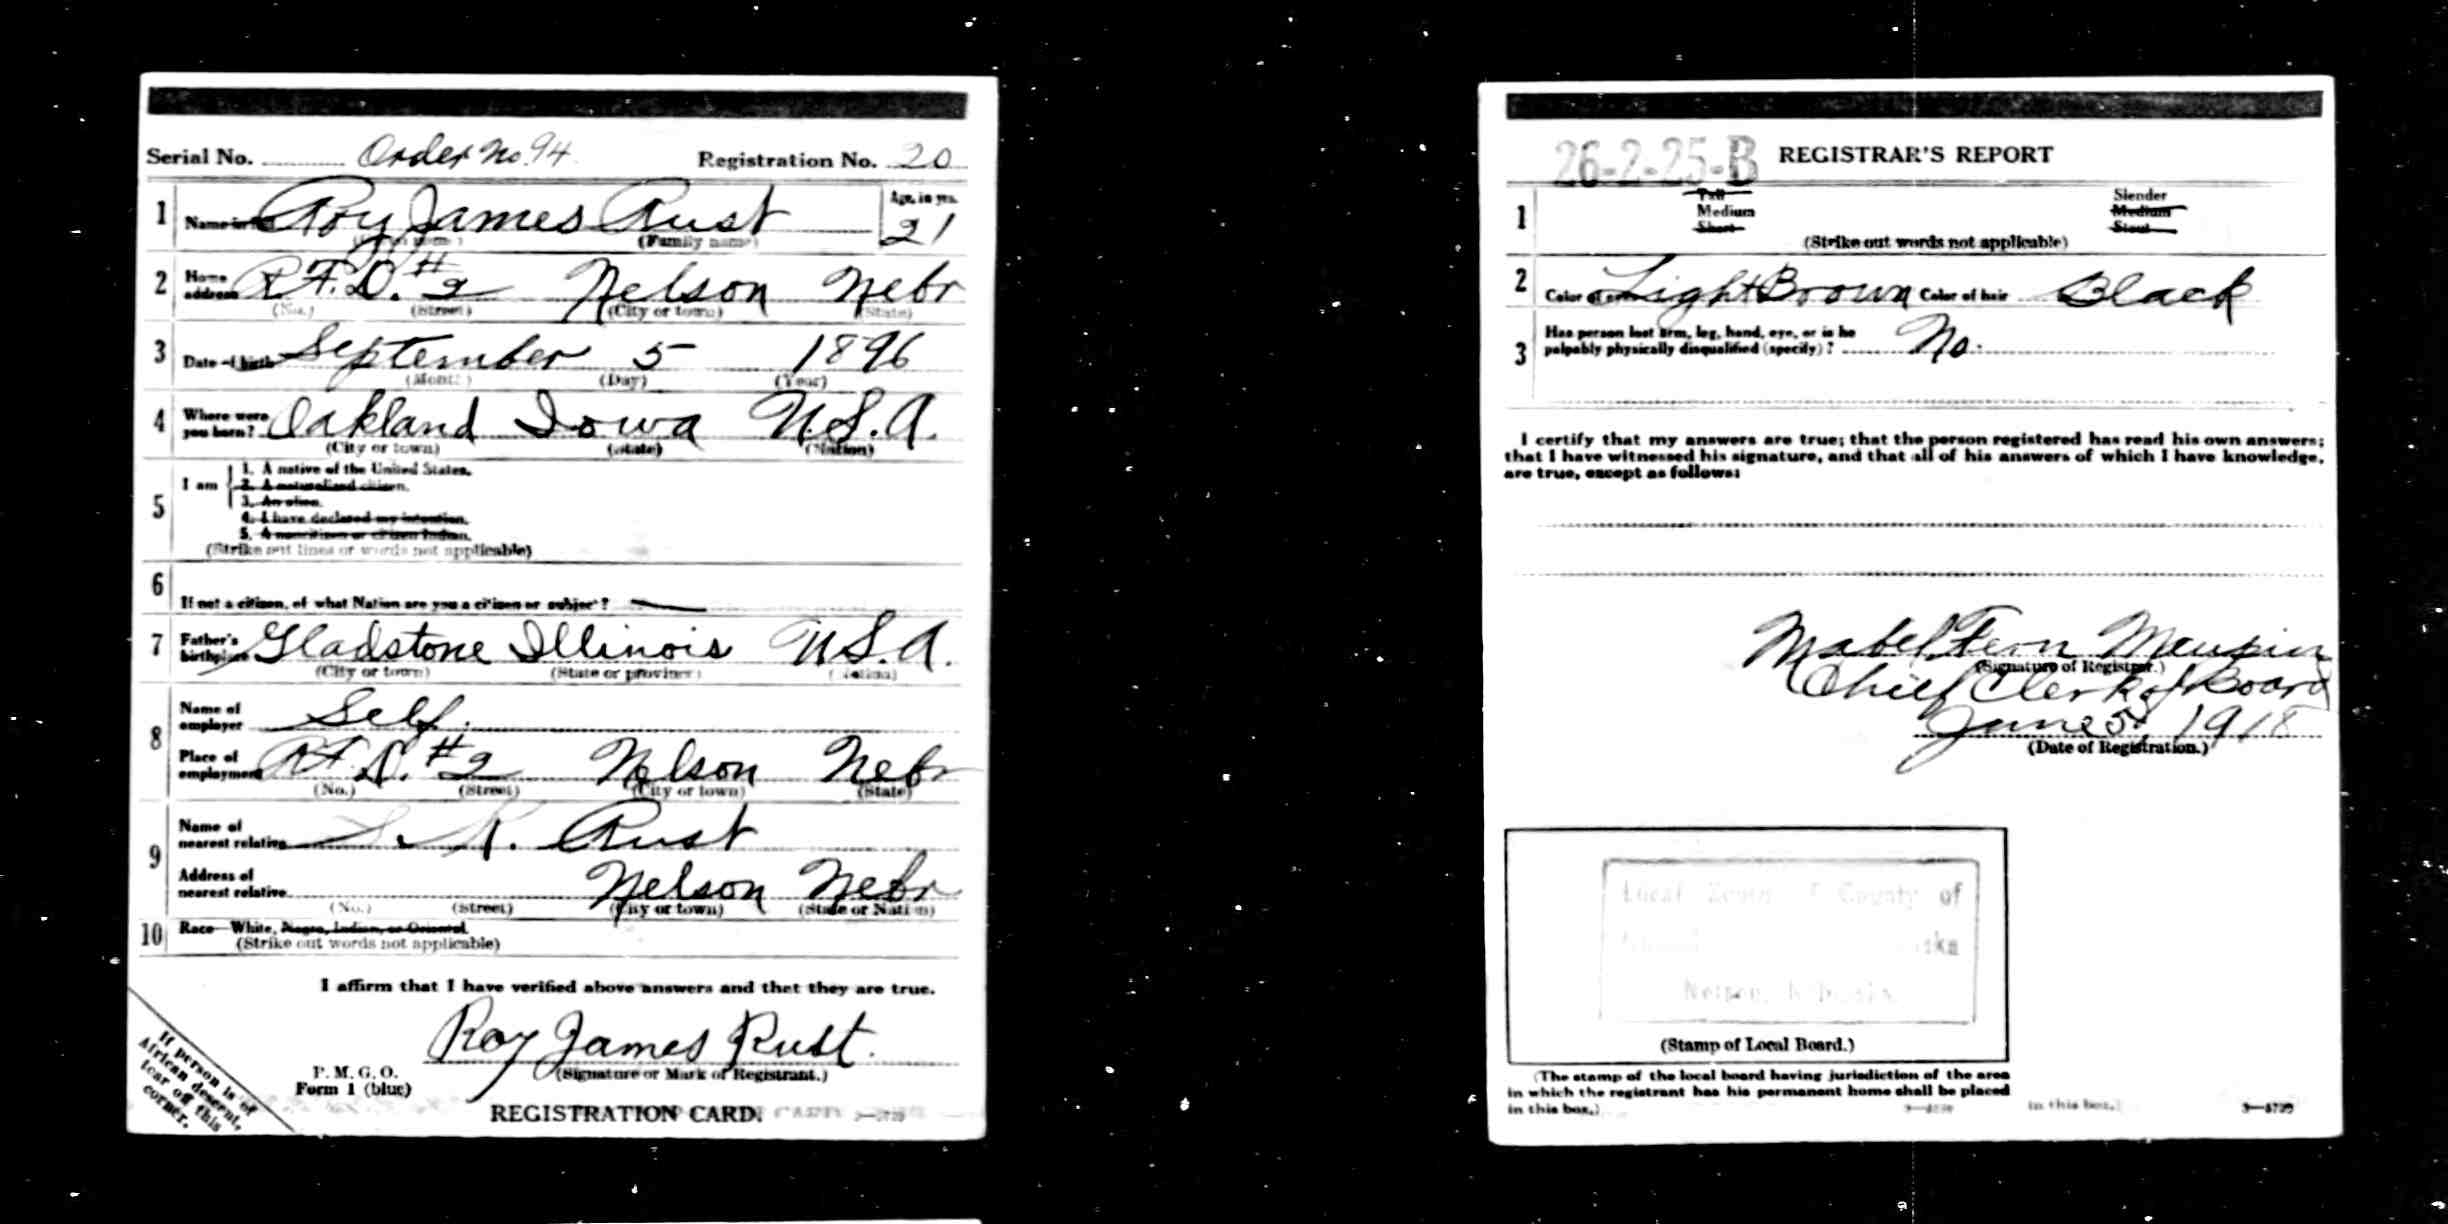 Serial No. Order No. 94 Registration No. 20
1 Name in full Roy James Rust Age, in yrs. 21
(Family name)
2 Home address R.F.D. #2 Nelson Nebr
(No.) (Street) (City or town) (State)
3 Date of birth September 5 1896
(Month) (Day) (Year)
4 Where were you born? Oakland Iowa U.S.A.
(City or town) (State) (Nation)
5 I am
1. A native of the United States.
2. A naturalized citizen.
3. An alien.
4. I have declared my intention.
5. A noncitizen or citizen Indian.
(Strike out lines or words not applicable)
6 If not a citizen, of what Nation are you a citizen or subject?
7 Father's birthplace Gladstone Illinois U.S.A.
(City or town) (State or province) (Nation)
8 Name of employer Self.
Place of employment R.F.D. #2 Nelson Nebr
(No.) (Street) (City or town) (State)
9 Name of nearest relative R. Rust
Address of nearest relative Nelson Nebr
(No.) (Street) (City or town) (State or Nation)
10 Race—White, Negro, Indian, or Oriental
(Strike out words not applicable)
I affirm that I have verified above answers and that they are true.
Roy James Rust.
(Signature or Mark of Registrant.)
P. M. G. O.
Form 1 (blue)
REGISTRATION CARD.
If person is of
African descent,
tear off this
corner.
26-2-25-B REGISTRAR'S REPORT
1 Tall Slender
Medium Medium
Short Stout
(Strike out words not applicable)
2 Color of eyes Light Brown Color of hair Black
3 Has person lost arm, leg, hand, eye, or is he
palpably physically disqualified (specify)? No.
I certify that my answers are true; that the person registered has read his own answers;
that I have witnessed his signature, and that all of his answers of which I have knowledge,
are true, except as follows:
Mabel Fern Maupin
(Signature of Registrar.)
Chief Clerk of Board
June 5, 1918
(Date of Registration.)
Local County of
Nelson, Nebraska
(Stamp of Local Board.)
(The stamp of the local board having jurisdiction of the area
in which the registrant has his permanent home shall be placed
in this box.) in this box.) 3—5799